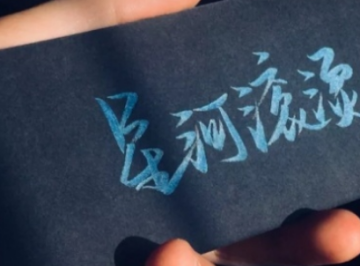 星河滚烫